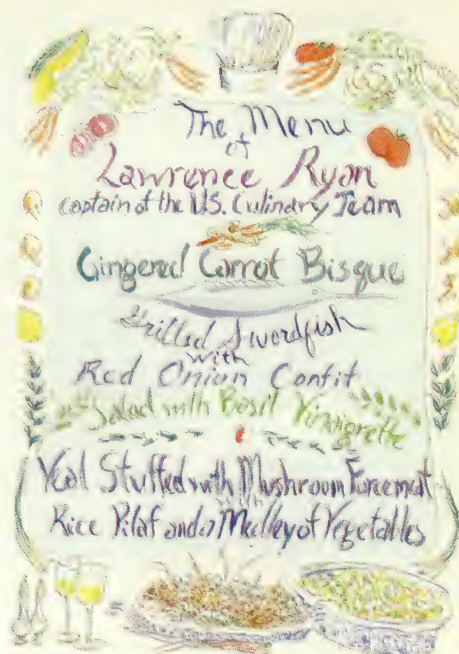 The Menu
of
Lawrence Ryan
captain of the U.S. Culinary Team
Gingered Carrot Bisque
Grilled Swordfish
with
Red Onion Confit
Salad with Basil Vinaigrette
Veal Stuffed with Mushroom Forcemeat
with
Rice Pilaf and a Medley of Vegetables